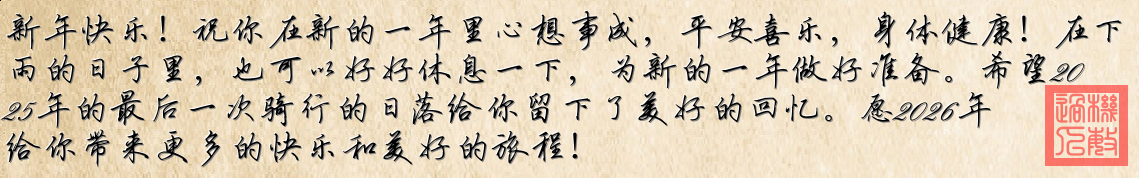 新年快乐！祝你在新的一年里心想事成，平安喜乐，身体健康！在下
雨的日子里，也可以好好休息一下，为新的一年做好准备。希望20
25年的最后一次骑行的日落给你留下了美好的回忆。愿2026年
给你带来更多的快乐和美好的旅程！